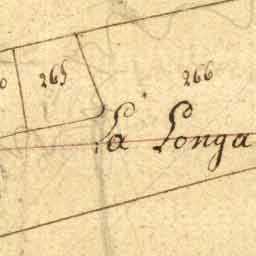 265
266
La Longa